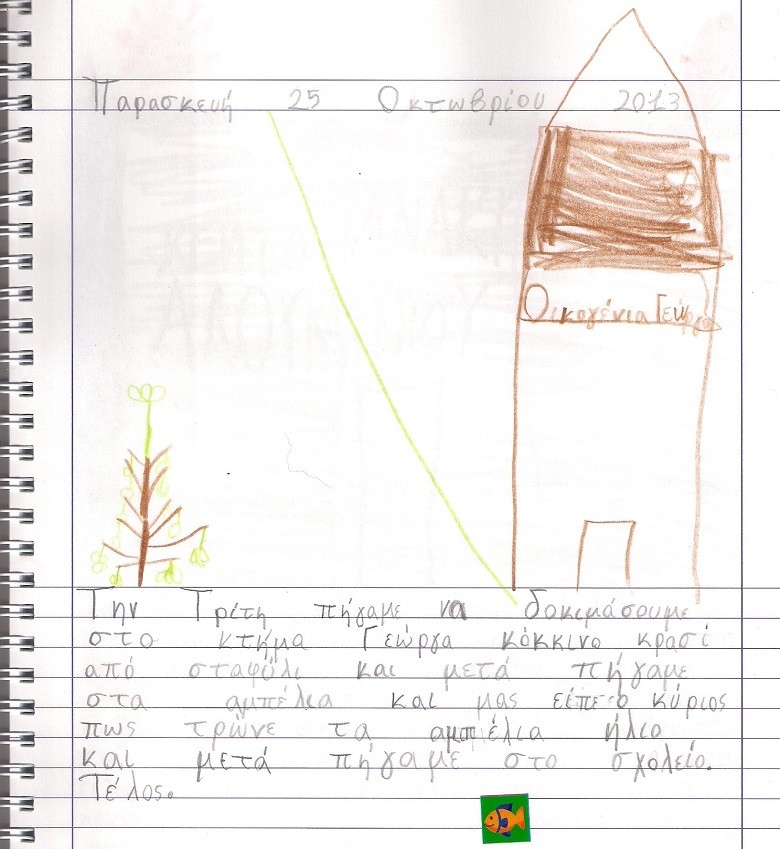 Παρασκευή 25 Οκτωβρίου 2013
Οικογένια Γεώργα
Την Τρίτη πήγαμε να δοκιμάσουμε
στο κτήμα Γεώργα κόκκινο κρασί
από σταφύλι και μετά πήγαμε
στα αμπέλια και μας είπε ο κύριος
πως τρώνε τα αμπέλια ήλιο
και μετά πήγαμε στο σχολείο.
Τέλος.